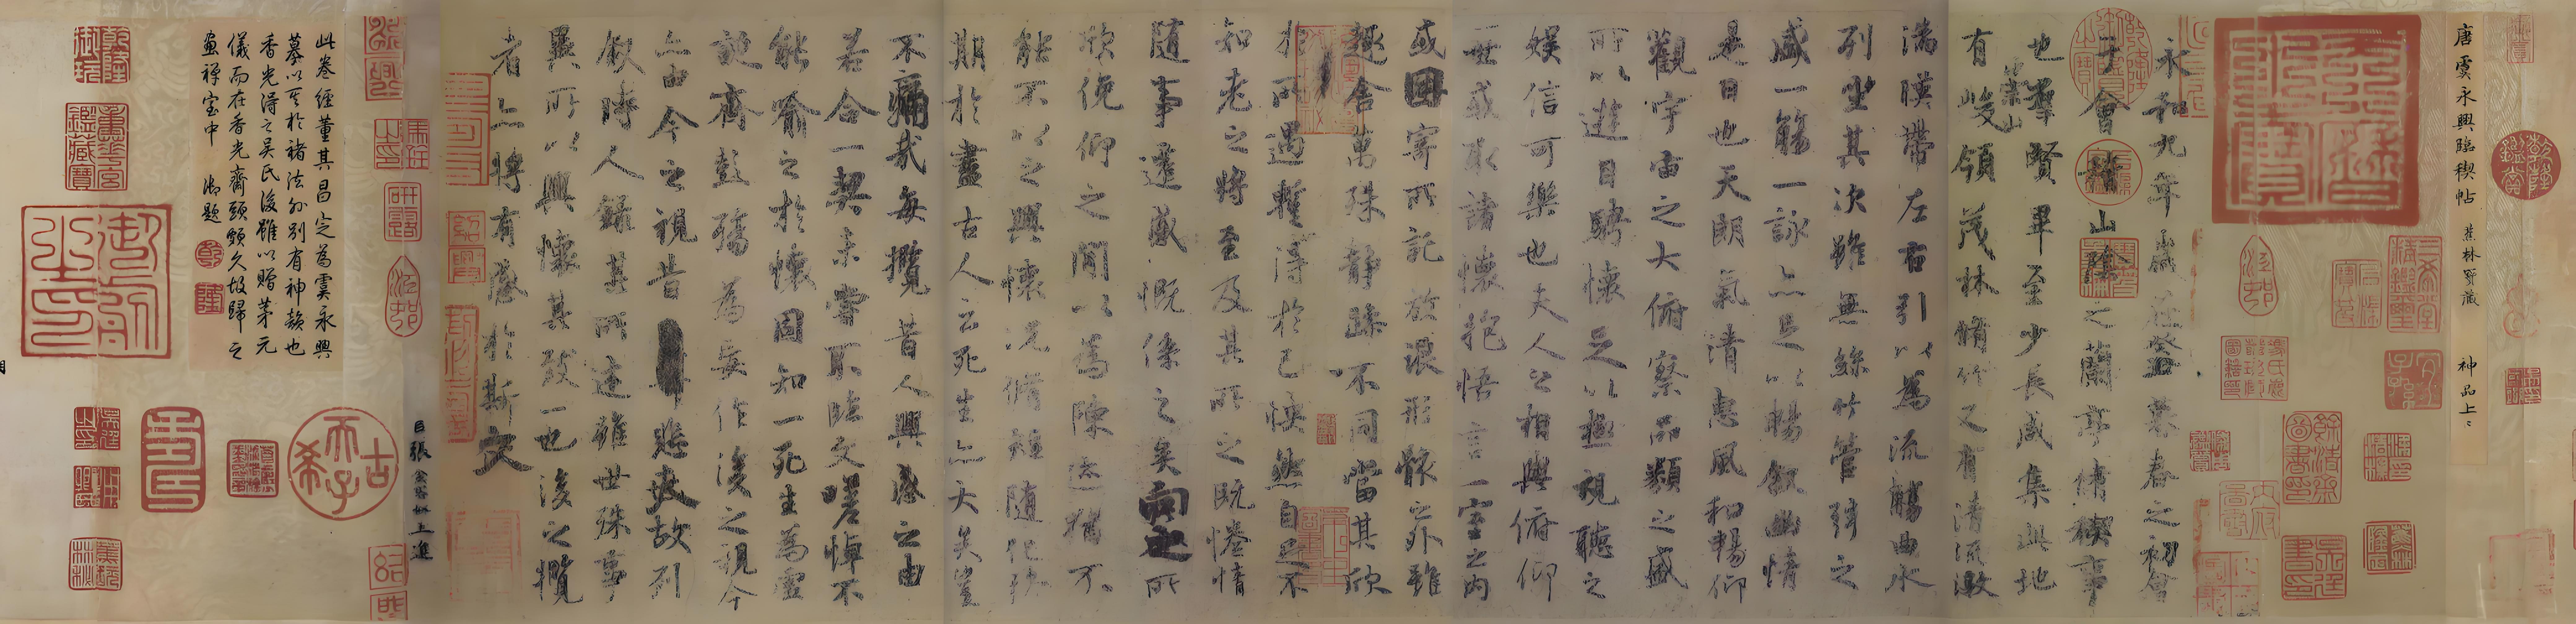 唐虞永興臨稧帖 蕉林 藏 神品上上
永和九年歲在癸丑暮春之初會
于會稽山陰之蘭亭脩稧事
也羣賢畢至少長咸集此地
有崇山峻領茂林脩竹又有清流激
湍暎帶左右引以為流觴曲水
列坐其次雖無絲竹管弦之
盛一觴一詠亦足以暢敘幽情
是日也天朗氣清惠風和暢仰
觀宇宙之大俯察品類之盛
所以遊目騁懷足以極視聽之
娛信可樂也夫人之相與俯仰
一世或取諸懷抱悟言一室之內
或因寄所託放浪形骸之外雖
趣舍萬殊靜躁不同當其欣
於所遇暫得於己怏然自足不
知老之將至及其所之既惓情
隨事遷感慨係之矣向之所
欣俛仰之閒以為陳迹猶不
能不以之興懷況脩短隨化終
期於盡古人云死生亦大矣豈
不痛哉每攬昔人興感之由
若合一契未嘗不臨文嗟悼不
能喻之於懷固知一死生為虛
誕齊彭殤為妄作後之視今
亦由今之視昔悲夫故列
敘時人錄其所述雖世殊事
異所以興懷其致一也後之攬
者亦將有感於斯文
臣張金界奴上進
此卷經董其昌定為虞永興
摹以其於褚法外別有神韻也
香光得之吳氏後雖以贈茅元
儀而在香光齋頭頗久故歸之
畫禪室中 御題
古希天子
壽